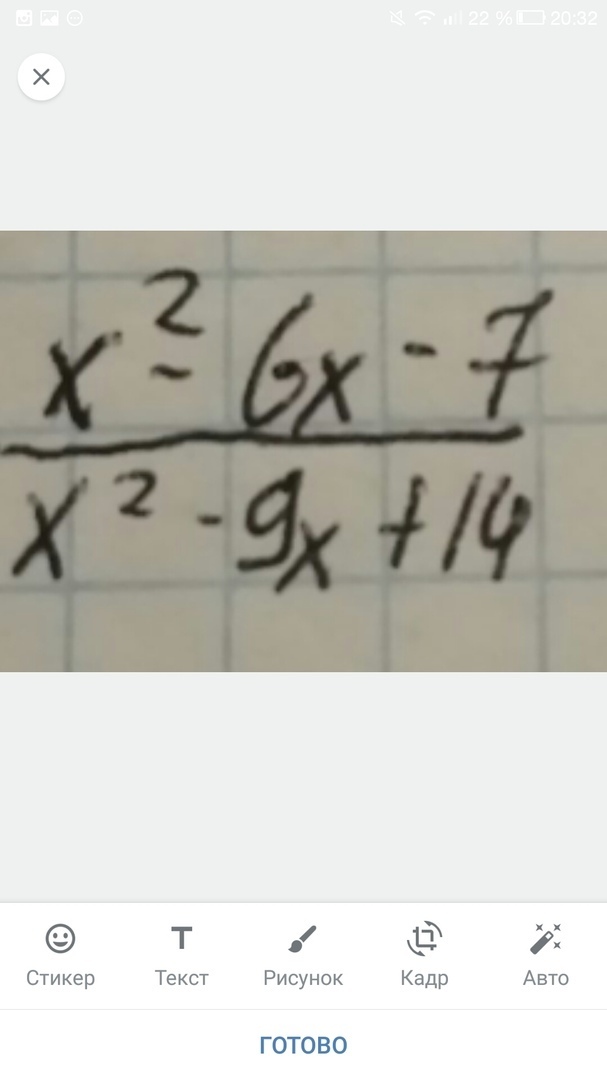 22 % 20:32
x² - 6x - 7
x² - 9x + 14
Стикер Текст Рисунок Кадр Авто
ГОТОВО